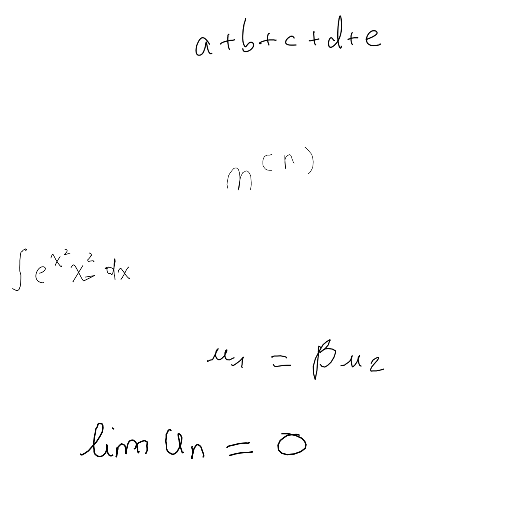 a+b+c+d+e
m^{(n)}
\int e^{x^2} x^2 dx
u_1 = \beta u_2
\lim a_n = 0